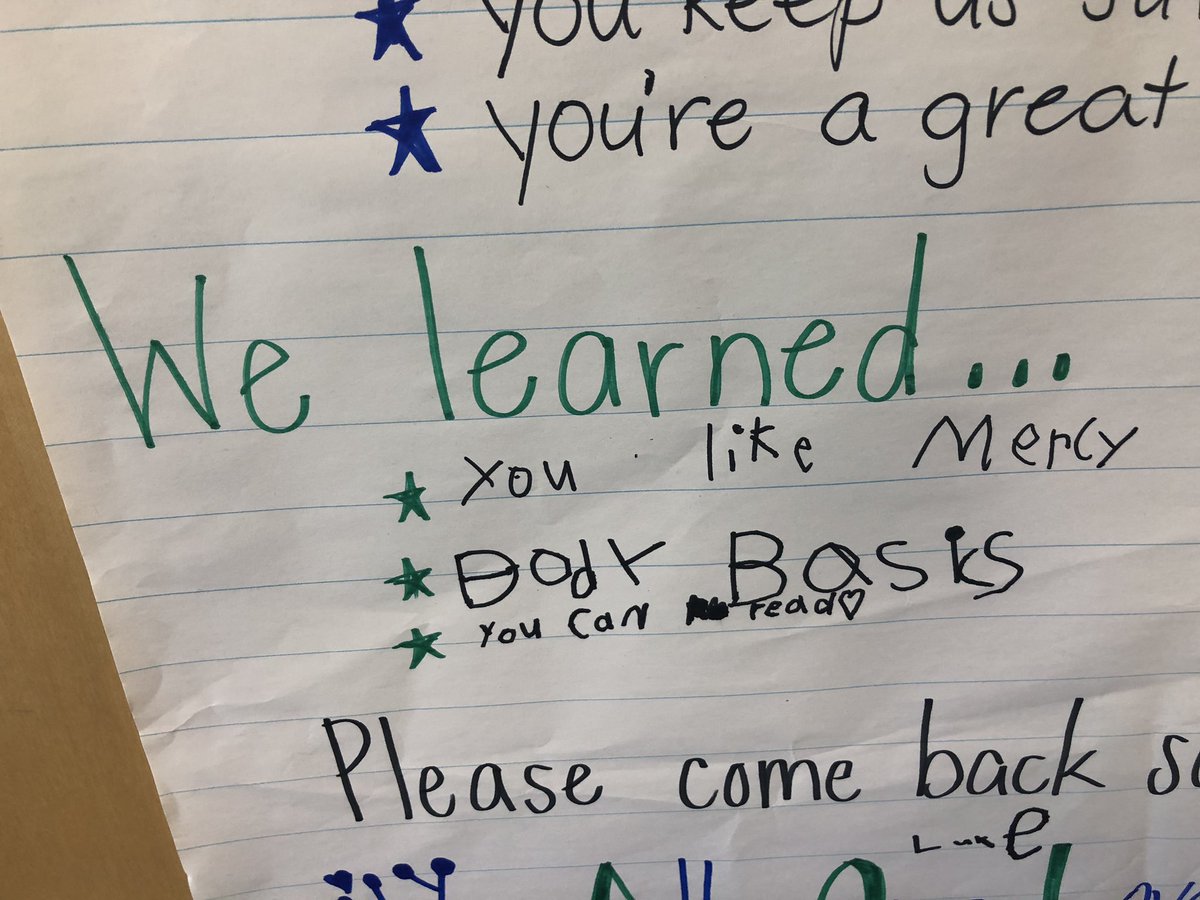 you keep us
you're a great
We learned...
you like Mercy
Body Basiks
you can read♡
Please come back
Luke
All